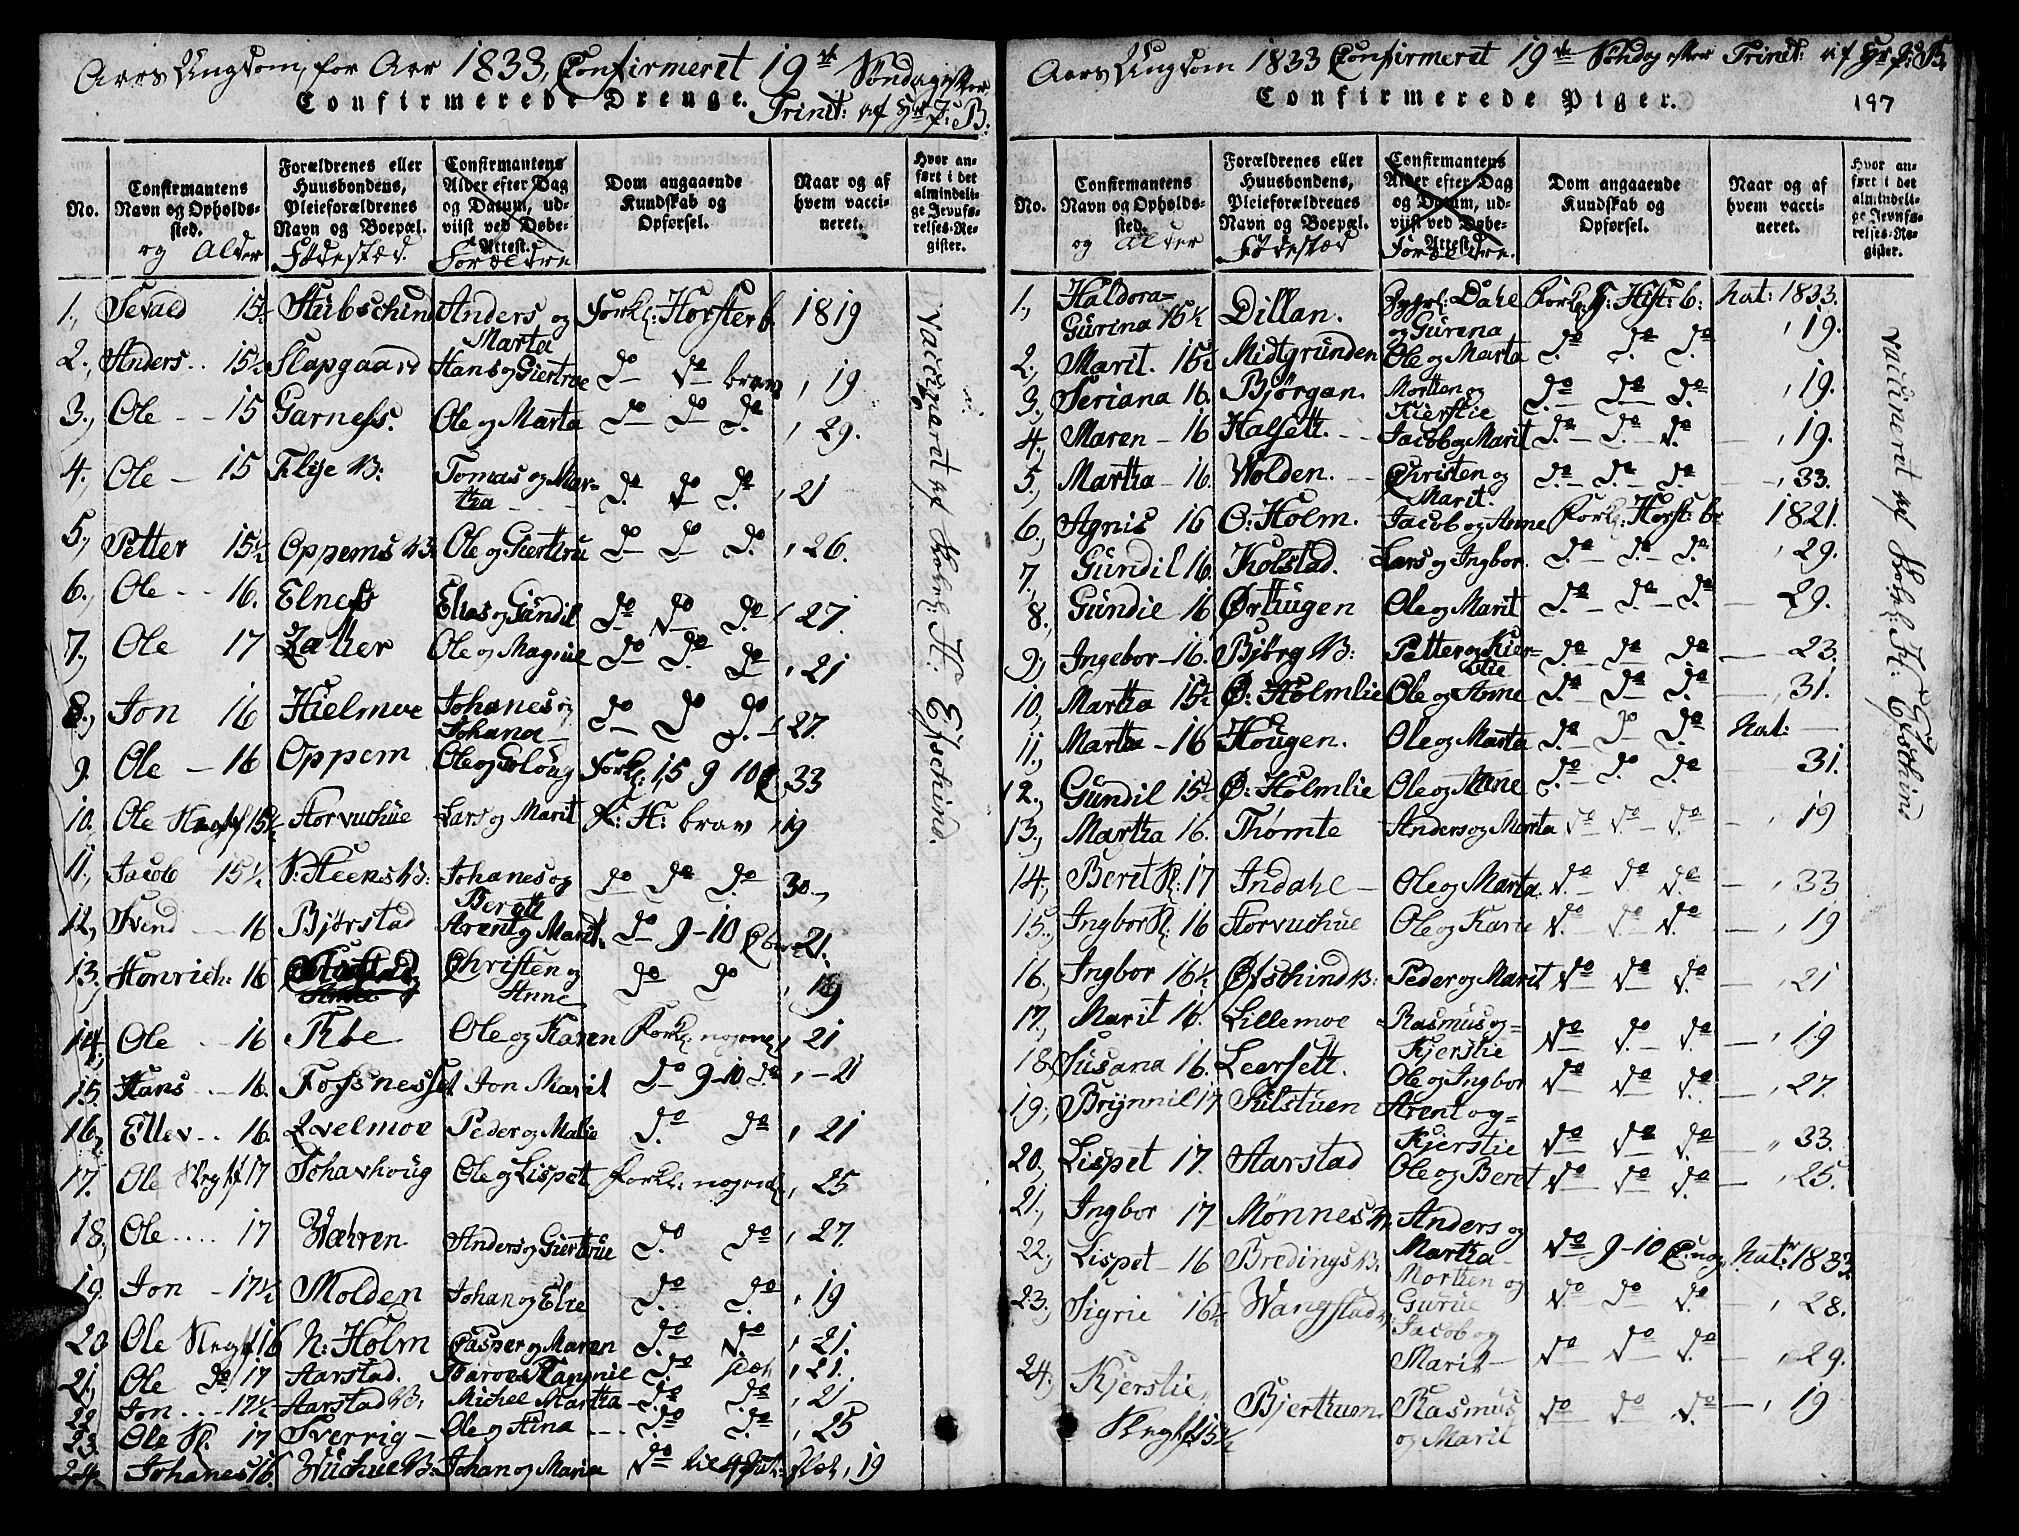 Aars Ungdom, for Aar 1833, Confirmeret 19de Søndag efter
Confirmerede Drenge. Trinit: af Hr P: B:
No.
Confirmantens Navn og Opholdssted.
og Alder
Forældrenes eller Huusbondens, Pleieforældrenes Navn og Boepæl.
Fødested.
Confirmantens Alder efter Dag og Datum, udviist ved Døbe-Attest.
Forældre
Dom angaaende Kundskab og Opførsel.
Naar og af hvem vaccineret.
Hvor anført i det almindelige Jevnførelses-Register.
1., Sevald 15½ Stubschind Anders og Marta Forkl: Horsterb. 1819
2., Anders .. 15½ Slapgaard Hans og Giertrue do do brav , 19
3., Ole - - 15 Garness. Ole og Marta do do do , 29.
4., Ole - 15 Flije B: Tomas og Martha do do do , 21
5., Petter 15½ Oppems B: Ole og Giertrue do do do , 26.
6., Ole - - 16. Elness Elias og Gundil do do do , 27
7., Ole 17 Ole og do do do , 21
8., Jon 16 Hielmoe Johanes og Johana do do do , 27.
9. Ole - 16 Oppem Ole og Forkl: 15 9 10 33
10. Ole 15½ Storvuchue Lars og Marit F: H: brav , 19
11., Jacob 15½ V: Steens B: Johanes og Berett do do do 30.,
12, Svend - 16 Bjørstad Arent og Marit do 9-10 21.
13., Henrich: 16 Christen og Anne do do , 19
14, Ole .. 16 Ole og Karen Forkl: 21
15. Hans .. 16. Fossnesset Jon Marit do 9-10 do , - 21
16, Ellev .. 16. Qvelmoe Peder og Malie do do , 21
17. Ole 17 Schavhoug Ole og Lispet Forkl: , 25
18, Ole .... 17 Wæhren Anders og Giertrue do do , 27.
19. Jon - 17½ Molden Johan og Elie do do , 19
20 Ole 16 N: Holm Casper og Maren do do , 21.
21., Ole do 17 Aarstad. do , 21.
22. Jon ... 17½ Aarstad B: Michel Martha do do , 21
23. Ole 17 Sverrig Ole og Stina do do , 25
24. Johanes 16. Wuchue B: Johan og Maria do , 19
Vaccineret af Hr: Efschind.
Aars Ungdom 1833 Confirmeret 19de Søndag efter Trinit: af Hr P: B.
Confirmerede Piger. 197
No.
Confirmantens Navn og Opholdssted.
og Alder
Forældrenes eller Huusbondens, Pleieforældrenes Navn og Boepæl.
Fødested
Confirmantens Alder efter Dag og Datum, udviist ved Døbe-Attest.
Forældre.
Dom angaaende Kundskab og Opførsel.
Naar og af hvem vaccineret.
Hvor anført i det almindelige Jevnførelses-Register.
1., Haldora Gurina 15½ Dillan. Dahl og Gurena Forkl: b: Nat: 1833.
2., Marit. 15½ Midtgrunden Ole og Marta do do do , 19.
3., Seriana 16. Bjørgan. Morten og Kierstie do do do , 19.
4. Maren - 16 Halsett. Jacob og Marit do do do - , 19.
5., Martha - 16 Wolden. Christen og Marit. do do do - , 33.
6., Agnis 16 Ø: Holm. Jacob og Anne Forkl: Horst: br 1821.
7., Gundil 16. Kolstad. Lars og Ingbor. do do do , 29.
8., Gundil 16 Ørthugen Ole og Marit do do do - 29.
9., Ingebor - 16. Bjørg B: Petter og Kierstie do do do - 23.
10, Martha 15½ Ø: Holmlie Ole og Anne do do do - , 31.
11., Martha - 16 Hougen. Ole og Marta do do do Nat:
12., Gundil 15½ Ø: Holmlie Ole og Anne do do do 31.
13., Martha 16. Thømte Anders og Marta do do do - , 19
14., Beret 17 Indahl Ole og Marta do do do - , 33
15., Ingbor 16 Storvuchue Ole og Karie do do do - , 19
16., Ingbor 16½ Øfschind B: Peder og Marit do do do - , 21
17., Marit 16. Lillemoe Rasmus og Kjerstie do do do - , 19
18., Susana 16. Leersett. Ole og Ingbor do do do - , 27.
19., Brynnil 17 Sulstuen Arent og Kjerstie do do do , 33.
20., Lispet 17. Aarstad Ole og Beret do do do - , 25.
21., Ingbor 17 Mønnes B: Anders og Martha do 9-10 Nat: 1833.
22., Lispet - 16 Bredings B: Morten og Gurue do do do - , 28.
23., Sigrie 16½ Wangstad Jacob og Marit do do do - , 29.
24., Kjerstie, 15½ Bjerthuen. Rasmus og Marit do do do - , 19